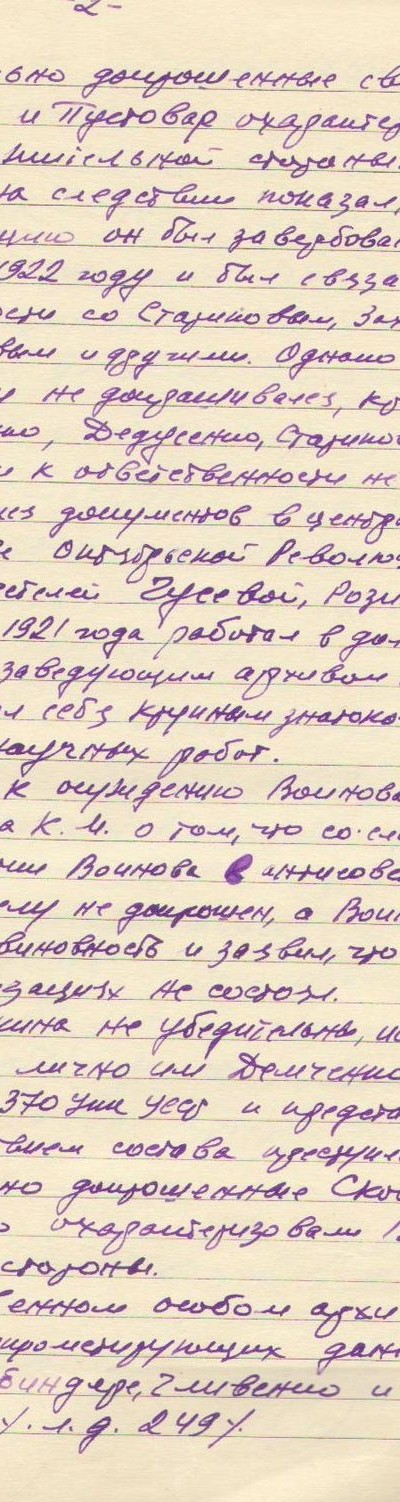 -2-
ьно допрошенные св
и Пустовар охаракте
жительной стороны.
на следствии показал,
цию он был завербова
1922 году и был связа
ости со Стариковым, За
вым и другими. Однако
и не допрашивался, к
ко, Дедусенко, Старико
и к ответственности не
из документов в центр
ве Октябрьской Револю
етелей Гусевой, Рози
1921 года работал в до
заведующим архивом
л себя крупным знатоко
научных работ.
к осуждению Воинова
а К.М. о том, что со сл
нии Воинова в антисове
елу не допрошен, а Вои
виновность и заявил, что
зациях не состоял.
кина не убедительны, ис
лично им Демченко
370 УПК УССР и предста
твием состава преступле
но допрошенные Ско
о охарактеризовали
стороны.
венном особом архи
прометирующих дан
биндере, Чливенко и
/. л.д. 249/.